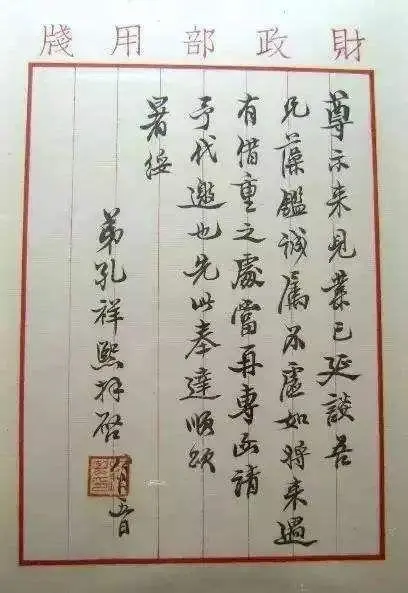 財政部用牋
尊示來見業已延談吾
兄藻鑑誠屬不虛如將來遇
有借重之處當再專函請
予代邀也先此奉達順頌
暑綏
弟孔祥熙拜啓